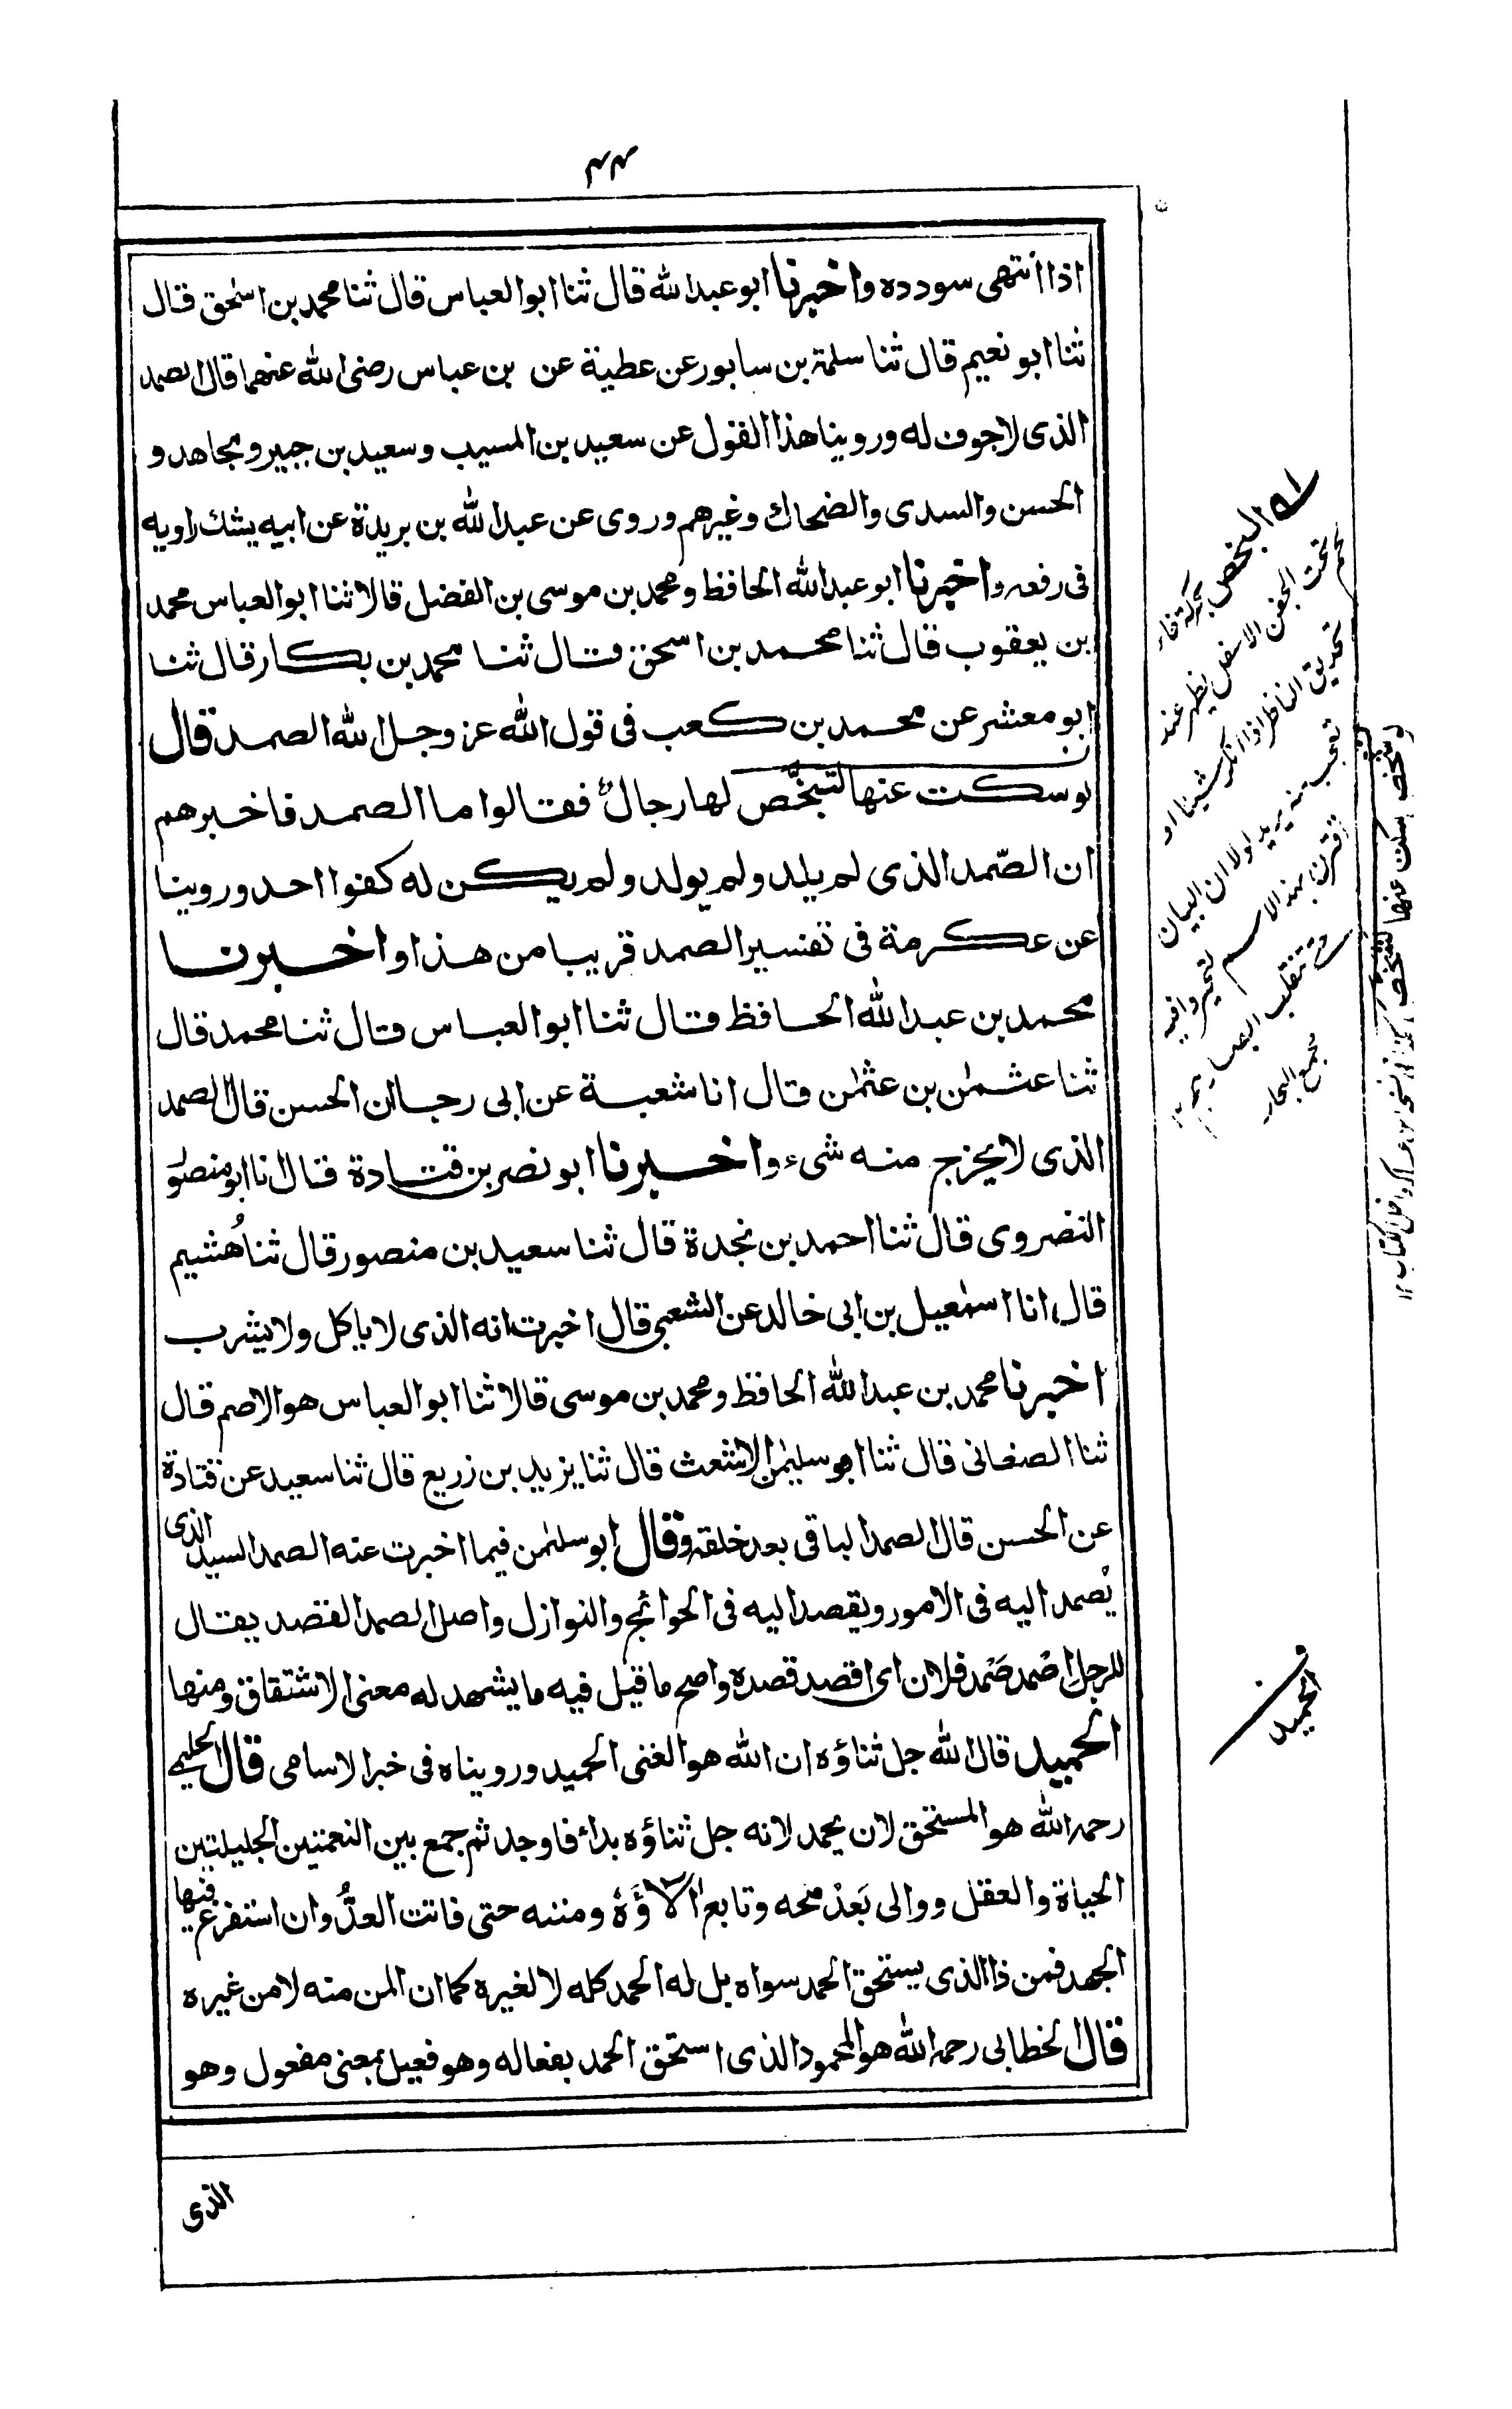 ٤٤
اذا انتهى سودده واخبرنا ابو عبد الله قال ثنا ابو العباس قال ثنا محمد بن اسحق قال
ثنا ابو نعيم قال ثنا سلمة بن سابور عن عطية عن بن عباس رضى الله عنهما قال الصمد
الذى لا جوف له وروينا هذا القول عن سعيد بن المسيب وسعيد بن جبير ومجاهد و
الحسن والسدى والضحاك وغيرهم وروى عن عبد الله بن بريدة عن ابيه يشك راويه
فى رفعه واخبرنا ابو عبد الله الحافظ ومحمد بن موسى بن الفضل قالا ثنا ابو العباس محمد
بن يعقوب قال ثنا محمد بن اسحق قال ثنا محمد بن بكار قال ثنا
ابو معشر عن محمد بن كعب فى قول الله عز وجل الله الصمد قال
لو سكت عنها لتبخّص لها رجال فقالوا ما الصمد فاخبرهم
ان الصّمد الذى لم يلد ولم يولد ولم يكن له كفوا احد وروينا
عن عكرمة فى تفسير الصمد قريبا من هذا واخبرنا
محمد بن عبد الله الحافظ قال ثنا ابو العباس قال ثنا محمد قال
ثنا عثمٰن بن عثمٰن قال انا شعبة عن ابى رجا ان الحسن قال الصمد
الذى لا يخرج منه شىء واخبرنا ابو نصر بن قتادة قال انا ابو منصور
النضروى قال ثنا احمد بن نجدة قال ثنا سعيد بن منصور قال ثنا هُشيم
قال انا اسمٰعيل بن ابى خالد عن الشعبى قال اخبرت انه الذى لا ياكل ولا يشرب
اخبرنا محمد بن عبد الله الحافظ ومحمد بن موسى قالا ثنا ابو العباس هو الاصم قال
ثنا الصغانى قال ثنا ابو سليمٰن الاشعث قال ثنا يزيد بن زريع قال ثنا سعيد عن قتادة
عن الحسن قال الصمد الباقى بعد خلقه وقال ابو سليمٰن فيما اخبرت عنه الصمد السيد الذى
يُصمد اليه فى الامور ويقصد اليه فى الحوائج والنوازل واصل الصمد القصد يقال
للرجل اصْمد صَمْد فلان اى اقصد قصده واصح ما قيل فيه ما يشهد له معنى الاشتقاق ومنها
الحميد قال الله جل ثناؤه ان الله هو الغنى الحميد ورويناه فى خبر الاسامى قال الحليمى
رحمه الله هو المستحق لان يحمد لانه جل ثناؤه بدأ فاوجد ثم جمع بين النعمتين الجليلتين
الحياة والعقل ووالى بَعْدُ منحه وتابع اٰلاؤَهُ ومننه حتى فاتت العدُّ وان استفرغ فيها
الجهد فمن ذا الذى يستحق الحمد سواه بل له الحمد كله لا لغيره كما ان المن منه لا من غيره
قال الخطابى رحمه الله هو المحمود الذى استحق الحمد بفعاله وهو فعيل بمعنى مفعول وهو
الذى
له البخص بحركة خاء
لحم تحت الجفن الاسفل يظهر عند
تحديق الناظر اذا انكر شيئا او
تعجب منه يريد لولا ان البيان
اقترن بهذا الاسم لتحيروا فيه
حتى تنقلب ابصارهم
مجمع البحار
الحميد